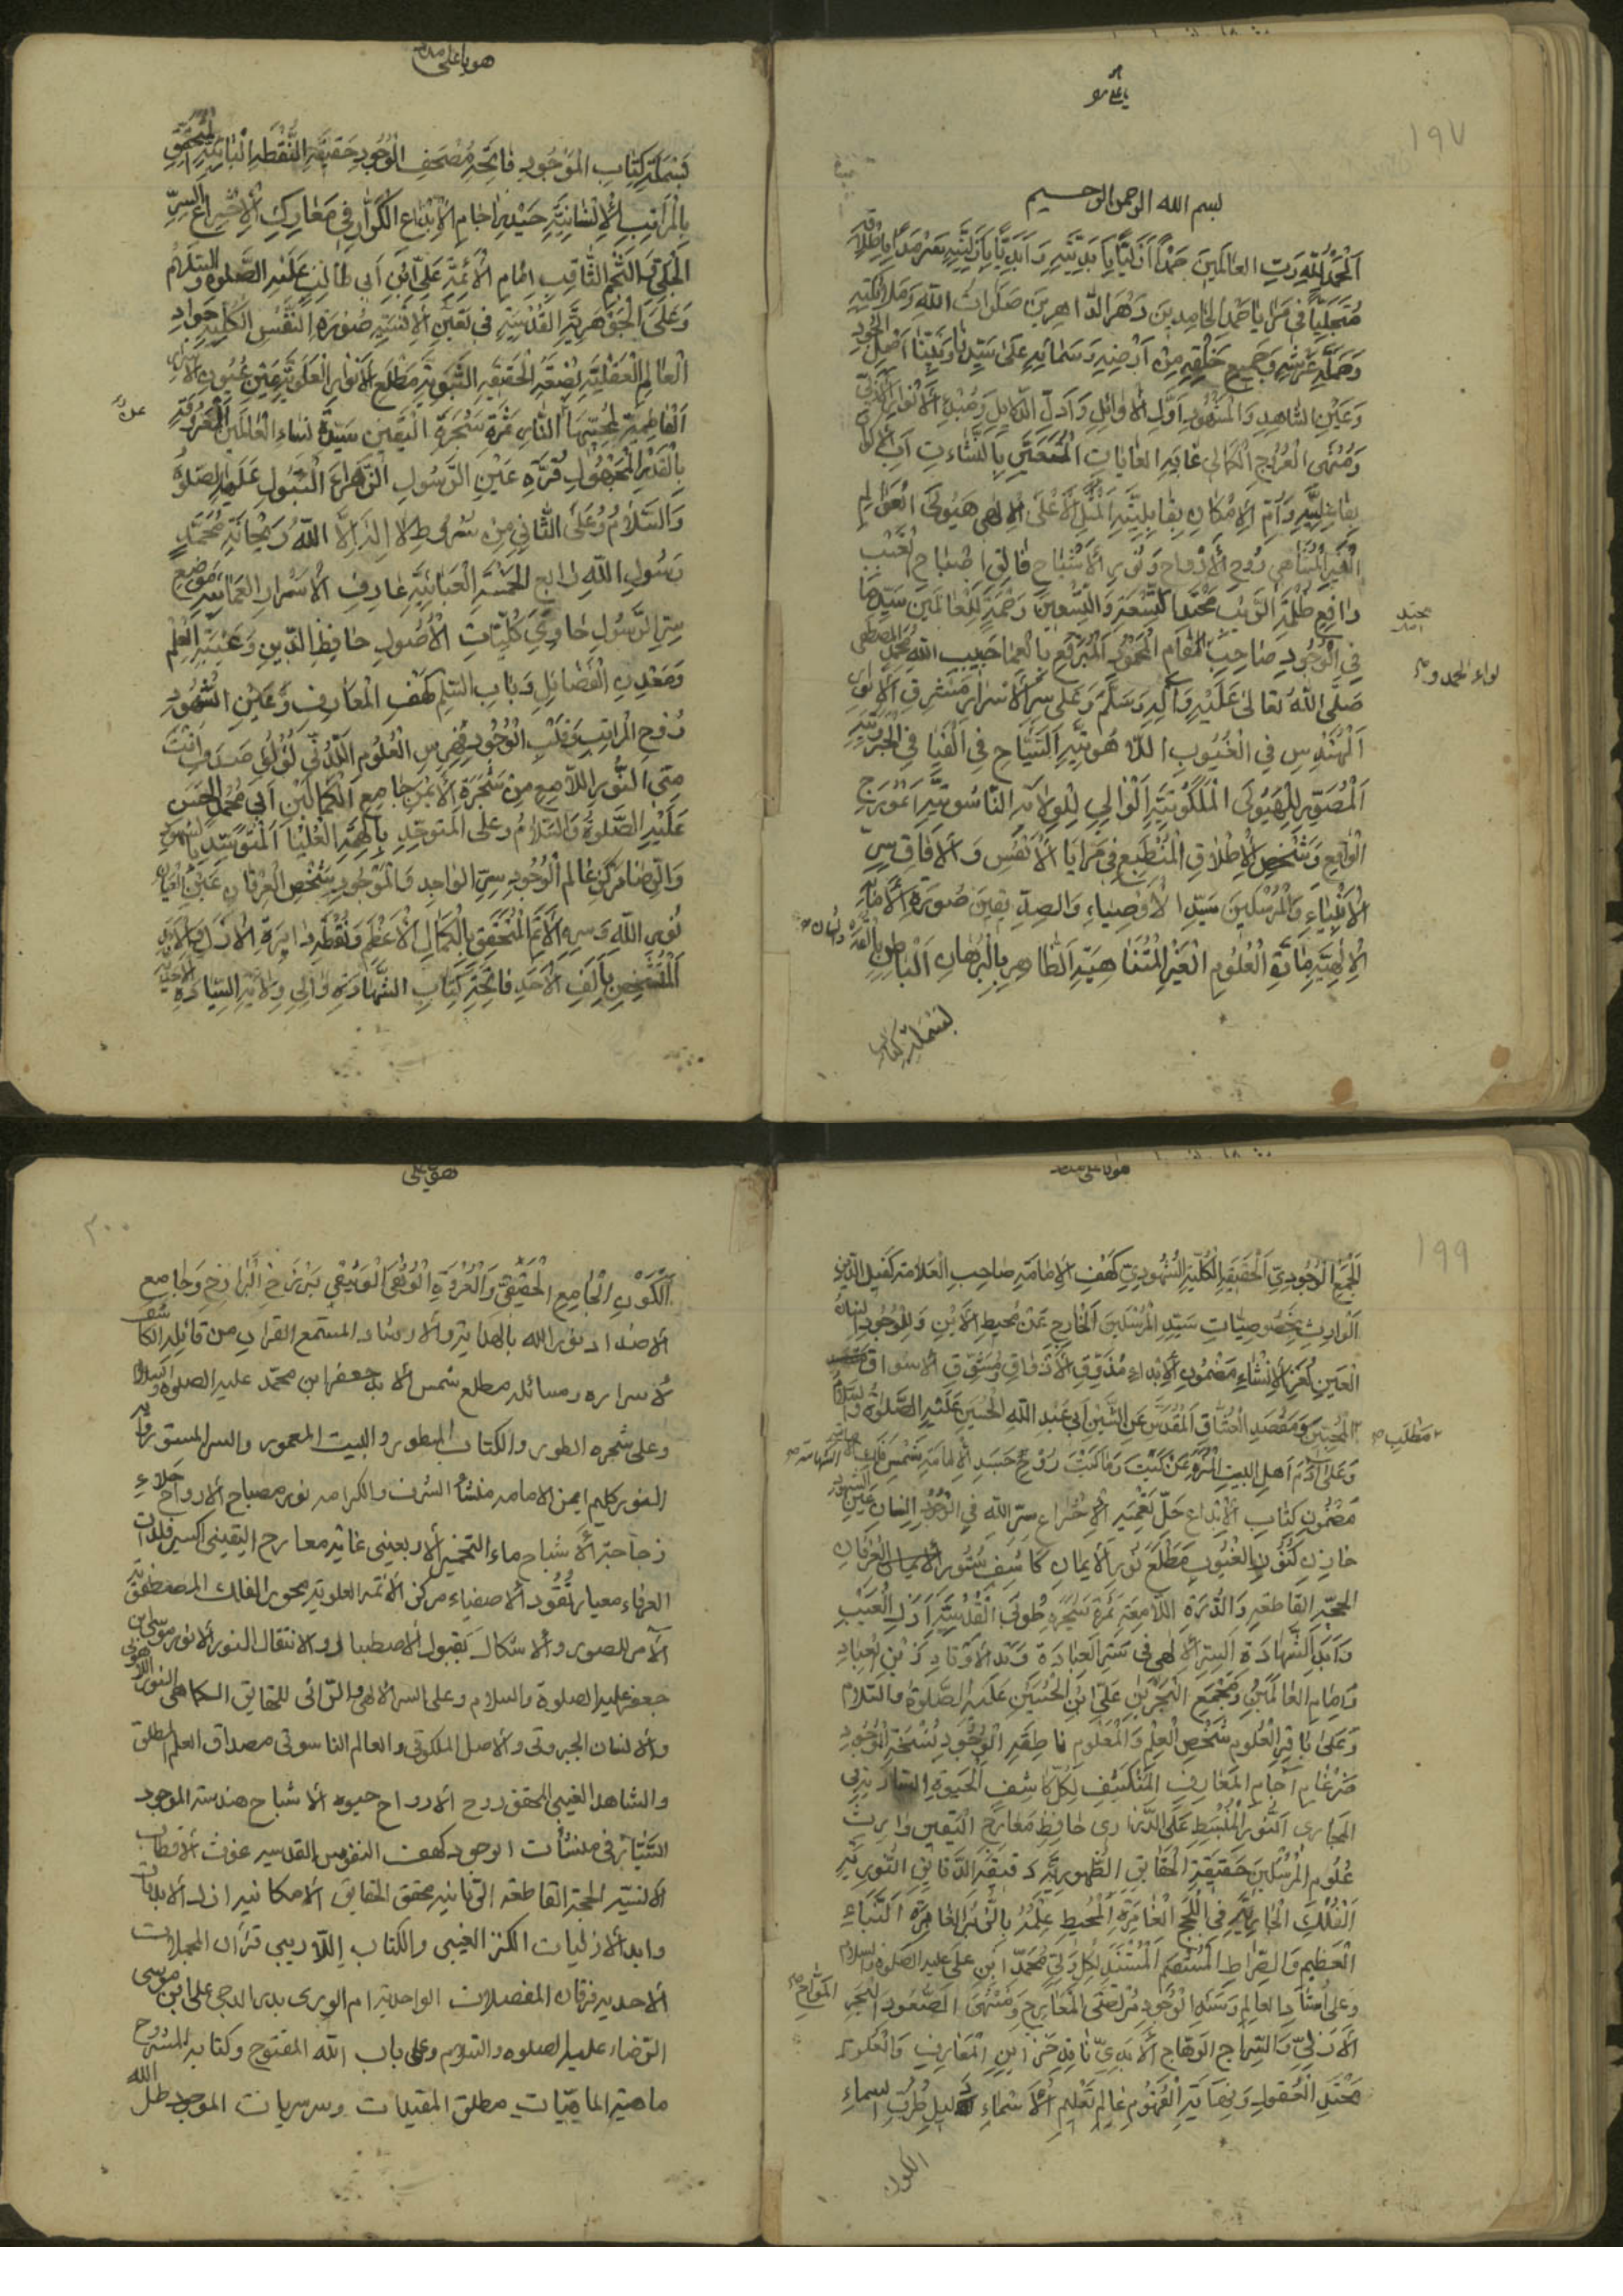 يا علي هو
١٩٧
بسم الله الرحمن الرحيم
اَلْحَمْدُ لِلّهِ رَبِّ العالَمينَ حَمْداً اَزَلِيّاً بِاَبَدِيَّتِهِ وَ اَبَدِيّاً بِاَزَلِيَّتِهِ سَرْمَداً بِاِطْلاقِهِ
مُتَجَلِّياً في مَرايا حَمْدِ الحامِدينَ دَهْرَ الدّاهِرينَ صَلَواتُ اللّهِ وَمَلائِكَتِهِ
وَحَمَلَةِ عَرْشِهِ وَجَميعِ خَلْقِهِ مِنْ اَرْضِهِ وَسَمائِهِ عَلى سَيِّدِنا وَنَبِيِّنا اَصْلِ الْجُودِ
وَعَيْنِ الشاهِدِ وَالْمَشْهُودِ اَوَّلِ الْأوائِلِ وَاَدَلِّ الدَّلايِلِ وَمَبْدَءِ الْأنْوارِ الْأَزَلِيِّ
وَمُنْتَهَى الْعُرُوجِ الْكَمالِيِّ غايَةِ الغاياتِ الْمُتَعَيِّنِ بِالنَّشَآتِ اَبِ الْأكْوانِ
بِفاعِلِيَّتِهِ وَاُمِّ الْإمْكانِ بِقابِلِيَّتِهِ الْمَثَلِ الْأعْلى الْإلهِي هَيُولَى الْعَوالِمِ
الْغَيْرِ الْمُتَناهي رُوحِ الْأرْواحِ وَنُورِ الْأشْباحِ فالِقِ اِصْباحِ الْغَيْبِ
دافِعِ ظُلْمَةِ الرَّيْبِ مُحْتَدِ التِّسْعَةِ وَالتِّسْعينَ رَحْمَةً لِلْعالَمينَ سَيِّدِنا
فِي الْوُجُودِ صاحِبِ الْمَقامِ الْمَحْمُودِ الْمُبَرْقَعِ بِالْعَما حَبيبِ اللّهِ مُحَمَّدٍ الْمُصْطَفى
لواء الحمد و
صَلَّى اللّهُ تَعالى عَلَيْهِ وَآلِهِ وَسَلَّمَ وَعَلى سِرِّ الْأسْرارِ مَشْرِقِ الْأنْوارِ
اَلْمُهَنْدِسِ فِي الْغُيُوبِ اللّاهُوتِيَّةِ اَلسَّيّاحِ فِي الْفَيافِي الْجَبَرُوتِيَّةِ
اَلْمُصَوِّرِ لِلْهَيُولَى الْمَلَكُوتِيَّةِ اَلْوالِي لِلْوِلايَةِ النّاسُوتِيَّةِ اَنْمُوذَجِ
الْواقِعِ وَشَخْصِ الْإطْلاقِ الْمُنْطَبِعِ في مَرايَا الْأنْفُسِ وَالْآفاقِ سِرِّ
الْأنْبِياءِ وَالْمُرْسَلينَ سَيِّدِ الْأوْصِياءِ وَالصِدّيقينَ صُورَةِ الْأمانَةِ
الْإلهِيَّةِ مادَّةِ الْعُلُومِ الْغَيْرِ الْمُتَناهِيَةِ اَلظّاهِرِ بِالْبُرْهانِ اَلْباطِنِ بِالْقَدْرِ وَالشَأن
بَسْمَلَةِ كتاب
هو يا علي مدد
بَسْمَلَةِ كِتابِ الْمَوْجُودِ فاتِحَةِ مُصْحَفِ الْوُجُودِ حَقيقَةِ النُّقْطَةِ الْبائِيَّةِ الْمُتَحَقِّقِ
بِالْمَراتِبِ الْإنْسانِيَّةِ حَيْدَرِ اجامِ الْإبْداعِ الْكَرّارِ في مَعارِكِ الْاِخْتِراعِ السِرِّ
الْجَلِيِّ وَالنَّجْمِ الثّاقِبِ اِمامِ الْأئِمَّةِ عَلِيِّ ابْنِ اَبي طالِبٍ عَلَيْهِ الصَّلوةُ وَالسَّلامُ
وَعَلَى الْجَوْهَرِيَّةِ الْقُدْسِيَّةِ في تَعَيُّنِ الْإنْسِيَّةِ صُورَةِ النَّفْسِ الْكُلِّيَّةِ جَوادِ
الْعالَمِ الْعَقْلِيَّةِ بِضْعَةِ الْحَقيقَةِ النَّبَوِيَّةِ مَطْلَعِ الْأنْوارِ الْعَلَوِيَّةِ عَيْنِ عُيُونِ الْأسْرارِ
اَلْفاطِمِيَّةِ لِمُحِبّيها النّاسِ ثَمَرَةِ شَجَرَةِ الْيَقينِ سَيِّدَةِ نِساءِ الْعالَمينَ الْمَعْرُوفَةِ
بِالْقَدْرِ الْمَجْهُولِ قُرَّةِ عَيْنِ الرَّسُولِ الزَّهْراءِ الْبَتُولِ عَلَيْهَا الصَّلوةُ
وَالسَّلامُ وَعَلَى الثّاني مِنْ شُرُوطِ لا اِلهَ اِلَّا اللّهُ رَيْحانَةِ مُحَمَّدٍ
رَسُولِ اللّهِ رابِعِ الْخَمْسَةِ الْعَبائِيَّةِ عارِفِ الْأسْرارِ الْعَمائِيَّةِ مَوْضِعِ
سِرِّ الرَّسُولِ حاوِي كُلِّيّاتِ الْأُصُولِ حافِظِ الدّينِ وَعَيْبَةِ الْعِلْمِ
وَمَعْدِنِ الْفَضائِلِ وَبابِ السِّلْمِ كَهْفِ الْمَعارِفِ وَعَيْنِ الشُّهُودِ
رُوحِ الْمَراتِبِ وَقَلْبِ الْوُجُودِ فِهْرِسِ الْعُلُومِ اللَّدُنِّي لُؤْلُؤِ صَدَفِ اَنْتَ
مِنِّي النُّورِ اللّامِعِ مِنْ شَجَرَةِ الْأيْمَنِ جامِعِ الْكَمالَيْنِ اَبي مُحَمَّدٍ الْحَسَنِ
عَلَيْهِ الصَّلوةُ وَالسَّلامُ وَعَلَى الْمُتَوَحِّدِ بِالْهِمَّةِ الْعُلْيا اَلْمُتَوَسِّدِ بِالشُهودِ
وَالرِّضا مَرْكَزِ عالَمِ الْوُجُودِ سِرِّ الْواجِدِ وَالْمَوْجُودِ شَخْصِ الْعِرْفانِ عَيْنِ الْعِيانِ
نُورِ اللّهِ وَسِرِّهِ الْأتَمِّ الْمُتَحَقِّقِ بِالْكَمالِ الْأعْظَمِ وَنُقْطَةِ دايِرَةِ الْأزَلِ وَالْأبَدِ
الْمُتَشَخِّصِ بِاَلِفِ الْأحَدِ فاتِحَةِ كِتابِ الشَّهادَةِ والِي وِلايَةِ السِّيادَةِ الْأحَدِيَّةِ
هو يا علي مدد
١٩٩
الْجَمْعِ الْوُجُودِيِّ الْحَقيقَةِ الْكُلِّيَّةِ الشُّهُودِيَّةِ كَهْفِ الْإمامَةِ صاحِبِ الْعَلامَةِ كَفيلِ الدّينِ
اَلْوارِثِ بِخُصُوصِيّاتِ سَيِّدِ الْمُرْسَلينَ الْخارِجِ عَنْ مُحيطِ الْأيْنِ وَالْوُجُودِ اِنْسانِ
الْعَيْنِ لُغْزِ الْإنْشاءِ مَضْمُونِ الْإبْداعِ مُذَوِّقِ الْأذْواقِ وَمُشَوِّقِ الْأشواقِ
مَطْلَبِ الْمُحِبّينَ وَمَقْصَدِ الْعُشّاقِ الْمُقَدَّسِ عَنِ الشَّيْنِ اَبي عَبْدِ اللّهِ الْحُسَيْنِ عَلَيْهِ الصَّلوةُ وَالسَّلامُ
وَعَلى آدَمِ اَهْلِ الْبَيْتِ الْمُنَزَّهِ عَنْ كَيْتَ وَما كَيْتَ رُوحِ جَسَدِ الْإمامَةِ شَمْسِ فَلَكِ الشَّهامَةِ
مَضْمُونِ كِتابِ الْإبْداعِ حَلِّ تَعْمِيَةِ الْاِخْتِراعِ سِرِّ اللّهِ فِي الْوُجُودِ اِنْسانِ عَيْنِ الشُّهُودِ
خازِنِ كُنُوزِ الْغُيُوبِ مَطْلَعِ نُورِ الْإيمانِ كاشِفِ مَسْتُورِ الْعِرْفانِ
الْحُجَّةِ الْقاطِعَةِ وَالدُّرَّةِ اللّامِعَةِ ثَمَرَةِ شَجَرَةِ طُوبَى الْقُدْسِيَّةِ اَزَلِ الْغَيْبِ
وَاَبَدِ الشَّهادَةِ السِّرِّ الْإلهي في سِتْرِ الْعِبادَةِ وَتَدِ الْأوْتادِ زَيْنِ الْعِبادِ
وَاِمامِ الْعالَمينَ وَمَجْمَعِ الْبَحْرَيْنِ عَلِيِّ ابْنِ الْحُسَيْنِ عَلَيْهِ الصَّلوةُ وَالسَّلامُ
وَعَلى باقِرِ الْعُلُومِ شَخْصِ الْعِلْمِ وَالْمَعْلُومِ ناطِقَةِ الْوُجُودِ نُسْخَةِ الْمَوْجُودِ
ضَرْغامِ آجامِ الْمَعارِفِ الْمُنْكَشِفِ لِكُلِّ كاشِفٍ اَلْحَيوةِ السّارِيَةِ فِي
الْمَجاري اَلنُّورِ الْمُنْبَسِطِ عَلَى الدَّراري حافِظِ مَعارِجِ الْيَقينِ وارِثِ
عُلُومِ الْمُرْسَلينَ حَقيقَةِ الْحَقايِقِ الظُّهُورِيَّةِ دَقيقَةِ الدَّقايِقِ النُّورِيَّةِ
اَلْفُلْكِ الْجارِيَةِ فِي اللُّجَجِ الْغامِرَةِ الْمُحيطِ عِلْمُهُ بِالزُّبُرِ الْغابِرَةِ اَلنَّبَاءِ
الْعَظيمِ وَالصِّراطِ الْمُسْتَقيمِ الْمُسْتَنَدِ لِكُلِّ وَلِيٍّ مُحَمَّدِ ابْنِ عَلي عليه الصلوة والسلام
وَعَلى اُسْتادِ الْعالَمِ وَسَنَدِ الْوُجُودِ مُرْتَقَى الْمَعارِجِ وَمُنْتَهَى الصُّعُودِ الْبَحْرِ الْمَوّاجِ
الْأزَلِيِّ وَالسِّراجِ الْوَهّاجِ الْأبَدِيِّ ناقِدِ خَزائِنِ الْمَعارِفِ وَالْعُلُومِ
مَحْتِدِ الْعُقُولِ وَنِهايَةِ الْفُهُومِ عالِمِ تَعْليمِ الْأسْماءِ دَليلِ طُرُقِ السماءِ
الكون
هو يا علي
٢٠٠
اَلْكَوْنِ الْجامِعِ الْحَقيقي وَالْعُرْوَةِ الْوُثْقَى الْوَثيقي بَرْزَخِ الْبَرازِخِ وَجامِعِ
الأضداد نور الله بالهداية والأرشاد المستمع القران من قائله الكاشف
لأسراره ومسائله مطلع شمس الأبد جعفر ابن محمد عليه الصلوة والسلام
وعلى شجره الطور والكتاب المسطور والبيت المعمور والسر المستور رقّ
المنور كليم ايمن الامامه منشأ الشرف والكرامه نور مصباح الأرواح جلاء
زجاجة الأشباح ماء التخمير الأربعيني غاية معارج اليقيني اكسير فلزات
العرفاء معيار نُقُود الأصفياء مركز الأئمة العلوية محور الفلك المصطفوية
الآمر للصور والأشكال بقبول الاصطبار والانتقال النور الأنور موسى بن
جعفر عليه الصلوة والسلام وعلى السر الالهي والرّائي للحقايق الكماهي النور اللاهوتي
والانسان الجبروتي والأصل الملكوتي والعالم الناسوتي مصداق العلم المطلق
والشاهد الغيبي المحقق روح الأرواح حيوة الأشباح هندسة الموجود
السَّيّار في منشأت الوجود كهف النفوس القدسيه غوث الأقطاب
الأنسيّة الحجة القاطعة الرّبانيه محقق الحقايق الأمكانيه ازل الأبديات
وابد الأزليات الكنز الغيبي والكتاب اللّاريبي قرآن المجملات
الأحديه فرقان المفصلات الواحدية امام الورى بدر الدجى علي ابن موسى
الرّضاء عليه الصلوه والسّلام وعلى باب الله المفتوح وكتابه المشروح
ماهية الماهيّات مطلق المقيدات وسر سريات الموجود ظل الله